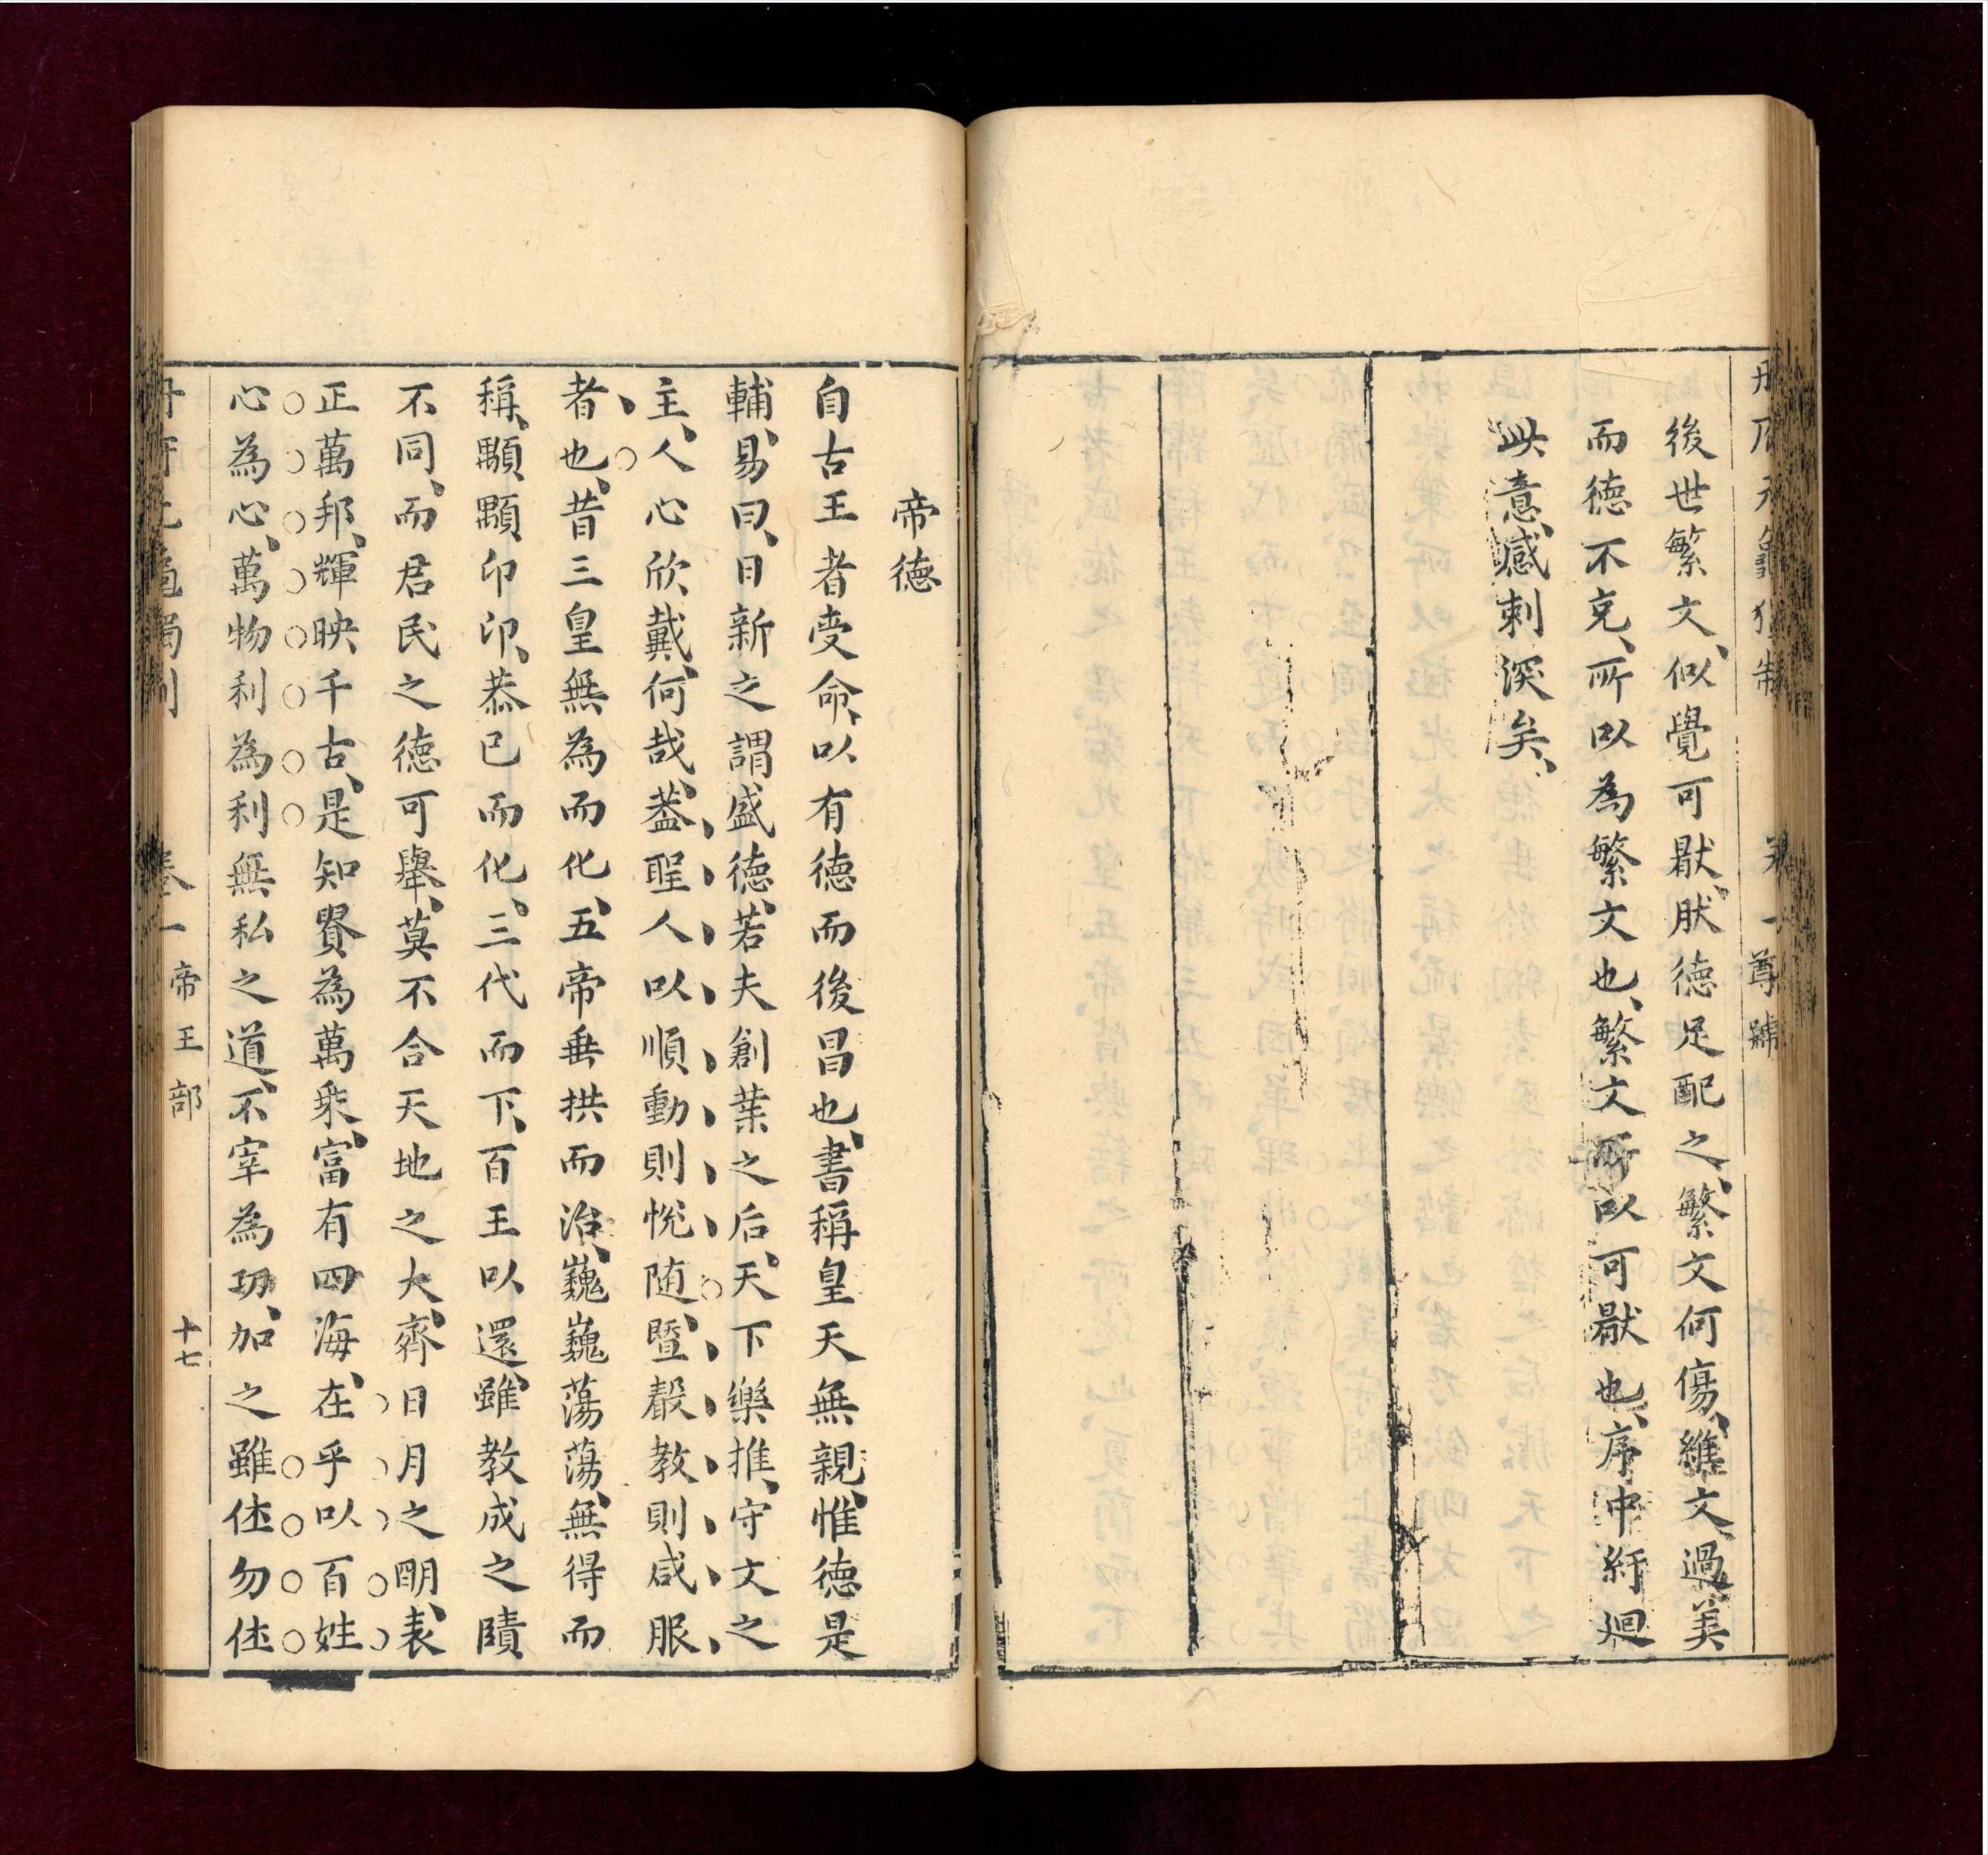 尊號
後世繁文、似覺可厭、肰德足配之、繁文何傷、維文過美
而德不克、所以為繁文也、繁文所以可厭也、序中紆廻
此意、感刺深矣、
帝德
自古王者受命、以有德而後昌也、書稱皇天無親、惟德是
輔、易曰、日新之謂盛德、若夫創業之后、天下樂推、守文之
主、人心欣戴、何哉、葢聖人以順動則悅随、暨聲教則咸服
者也、昔三皇無為而化、五帝垂拱而治、巍巍蕩蕩、無得而
稱、顒顒卬卬、恭已而化、三代而下、百王以還、雖教成之賾
不同、而君民之德可舉、莫不合天地之大、齊日月之明、表
正萬邦、輝映千古、是知貴為萬乘、富有四海、在乎以百姓
心為心、萬物利為利、無私之道、不宰為功、加之雖休勿休
卷一 帝王部 十七